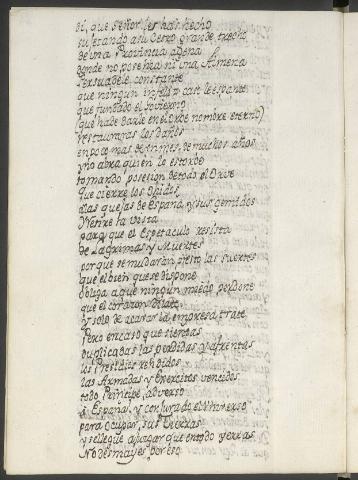 di, que Señor les has hecho
sugetando a su Cetro grande trecho
de una Provincia agena
donde no posehia ni una Almena
Persuadele constante
que ningun infeliz caso le espante
que fundado el Govierno
(que ha de darle en el Orbe nombre eterno)
restauraras los daños
en poco mas de un mes, de muchos años
y no abra quien le estorbe
tomando posesion de todo el Orve
que cierre los Oidos
a las quejas de España, y sus gemidos
Retire la vista
para que el Espetaculo resista
de Lagrimas y Muertes
porque se mudaran presto las suertes
que el bien que se dispone
obliga a que ningun miedo perdone
que el corazon dilate
y solo de acavar la empresa trate
Pero en caso que sientas
duplicadas las perdidas y afrentas
los Presidios rendidos
las Armadas y Exercitos vencidos
todo Principe adverso
a España, y conjurado el Universo
para ocupar sus Tierras
y se llegue a juzgar que en todo yerras
No desmayes por eso